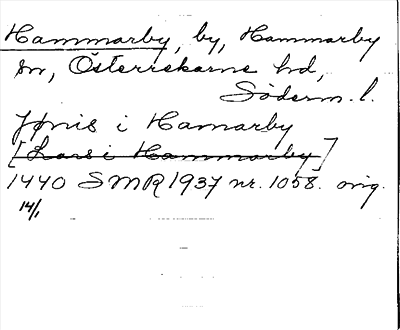 Hammarby, by, Hammarby
sn, Österrekarne hd,
Söderm. l.
Jønis i Hamarby
[Lars i Hammarby]
1440 SMR 1937 nr. 1058. orig.
14/1